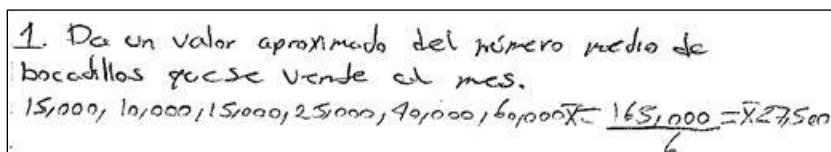 1. Da un valor aproximado del número medio de
bocadillos que se vende al mes.
15,000, 10,000, 15,000, 25,000, 40,000, 60,000 X̄ = 165,000 = X̄ 27,500
6